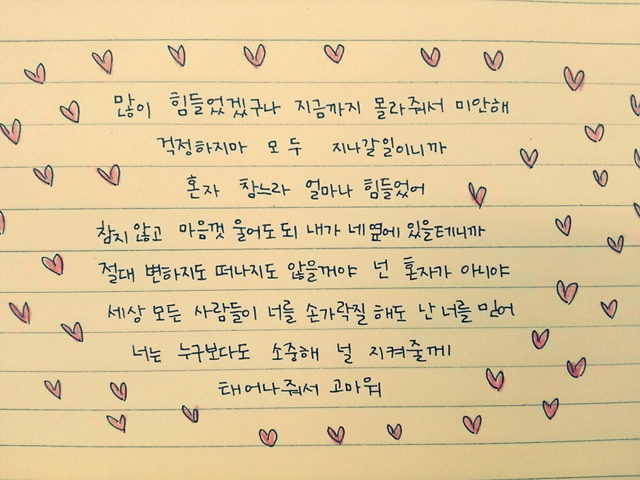 많이 힘들었겠구나 지금까지 몰라줘서 미안해
걱정하지마 모두 지나갈일이니까
혼자 참느라 얼마나 힘들었어
참지 않고 마음껏 울어도 되 내가 네옆에 있을테니까
절대 변하지도 떠나지도 않을꺼야 넌 혼자가 아니야
세상 모든 사람들이 너를 손가락질 해도 난 너를 믿어
너는 누구보다도 소중해 널 지켜줄께
태어나줘서 고마워